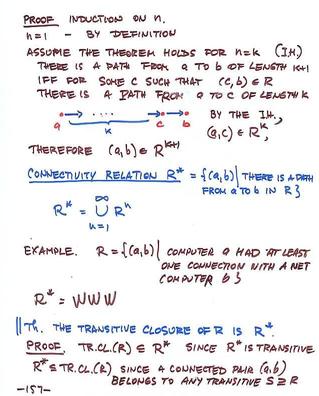 PROOF INDUCTION ON n.
n=1 - BY DEFINITION
ASSUME THE THEOREM HOLDS FOR n=k (I.H.)
THERE IS A PATH FROM a TO b OF LENGTH k+1
IFF FOR SOME c SUCH THAT (c,b) ∈ R
THERE IS A PATH FROM a TO c OF LENGTH k
a k c b
BY THE I.H.,
(a,c) ∈ R^k,
THEREFORE (a,b) ∈ R^{k+1}
CONNECTIVITY RELATION R* = {(a,b) | THERE IS A PATH
FROM a TO b IN R}
R* = ∪_{n=1}^{∞} R^n
EXAMPLE. R = {(a,b) | COMPUTER a HAD AT LEAST
ONE CONNECTION WITH A NET
COMPUTER b}
R* = WWW
Th. THE TRANSITIVE CLOSURE OF R IS R*.
PROOF. TR.CL.(R) ⊆ R* SINCE R* IS TRANSITIVE
R* ⊆ TR.CL.(R) SINCE A CONNECTED PAIR (a,b)
BELONGS TO ANY TRANSITIVE S ⊇ R
-157-